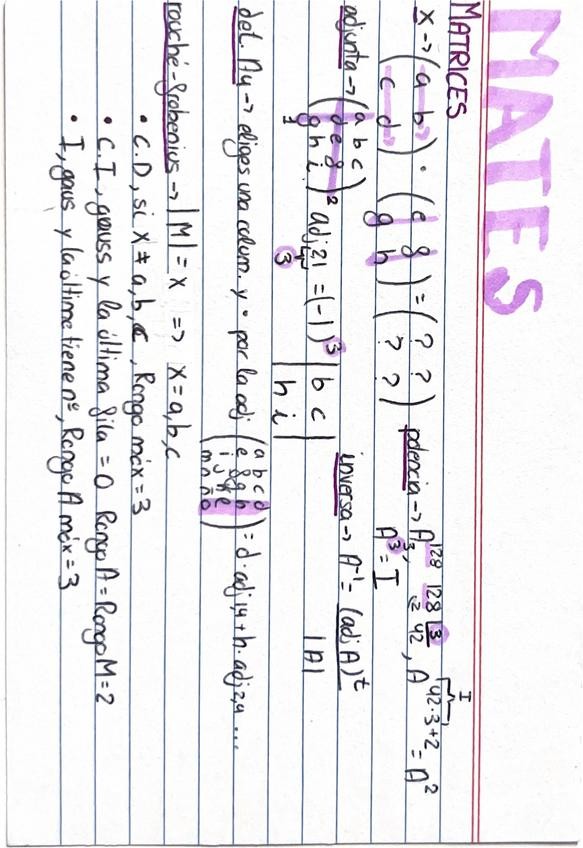 MATES
MATRICES
x → (a b / c d) · (e g / g h) = (? ? / ? ?)
potencia → A^128, 128 |3
2 42, A^(42·3+2) = A²
I
A³ = I
adjunta → (a b c / d e g / g h i) 2
1
adj 21 = (-1)^3 |b c / h i|
3
inversa → A⁻¹ = (adj A)^t / |A|
det. A4 → eliges una colum. y · por la adj (a b c d / e g g h / i j k l / m n ñ o) = d·adj 1,4 + h·adj 2,4 ...
rouché-frobenius → |M| = x => x = a,b,c
• C.D, si x ≠ a, b, c, Rango máx = 3
• C.I, gauss y la última fila = 0 Rango A = Rango M = 2
• I, gaus y la última tiene nº, Rango A máx = 3